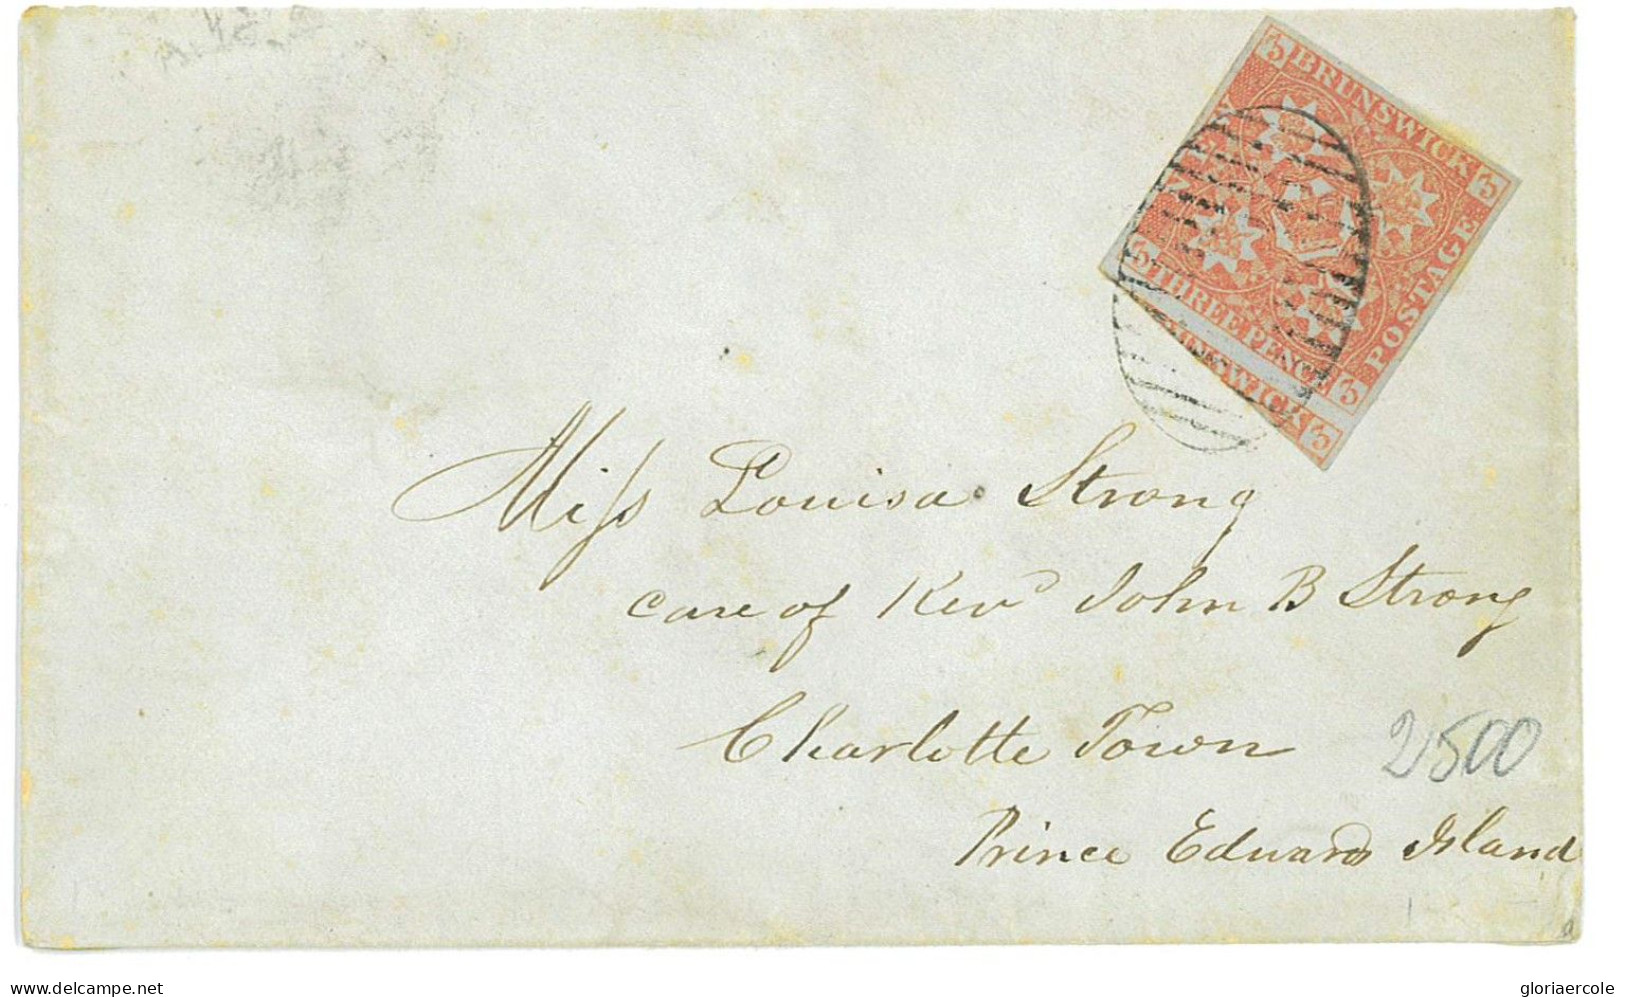 3 BRUNSWICK 3
NEW
POSTAGE
3 THREE PENCE 3
NSWICK 3
Miss Louisa Strong
care of Revd John B Strong
Charlotte Town
2500
Prince Edward Island
delcampe.net
gloriaercole